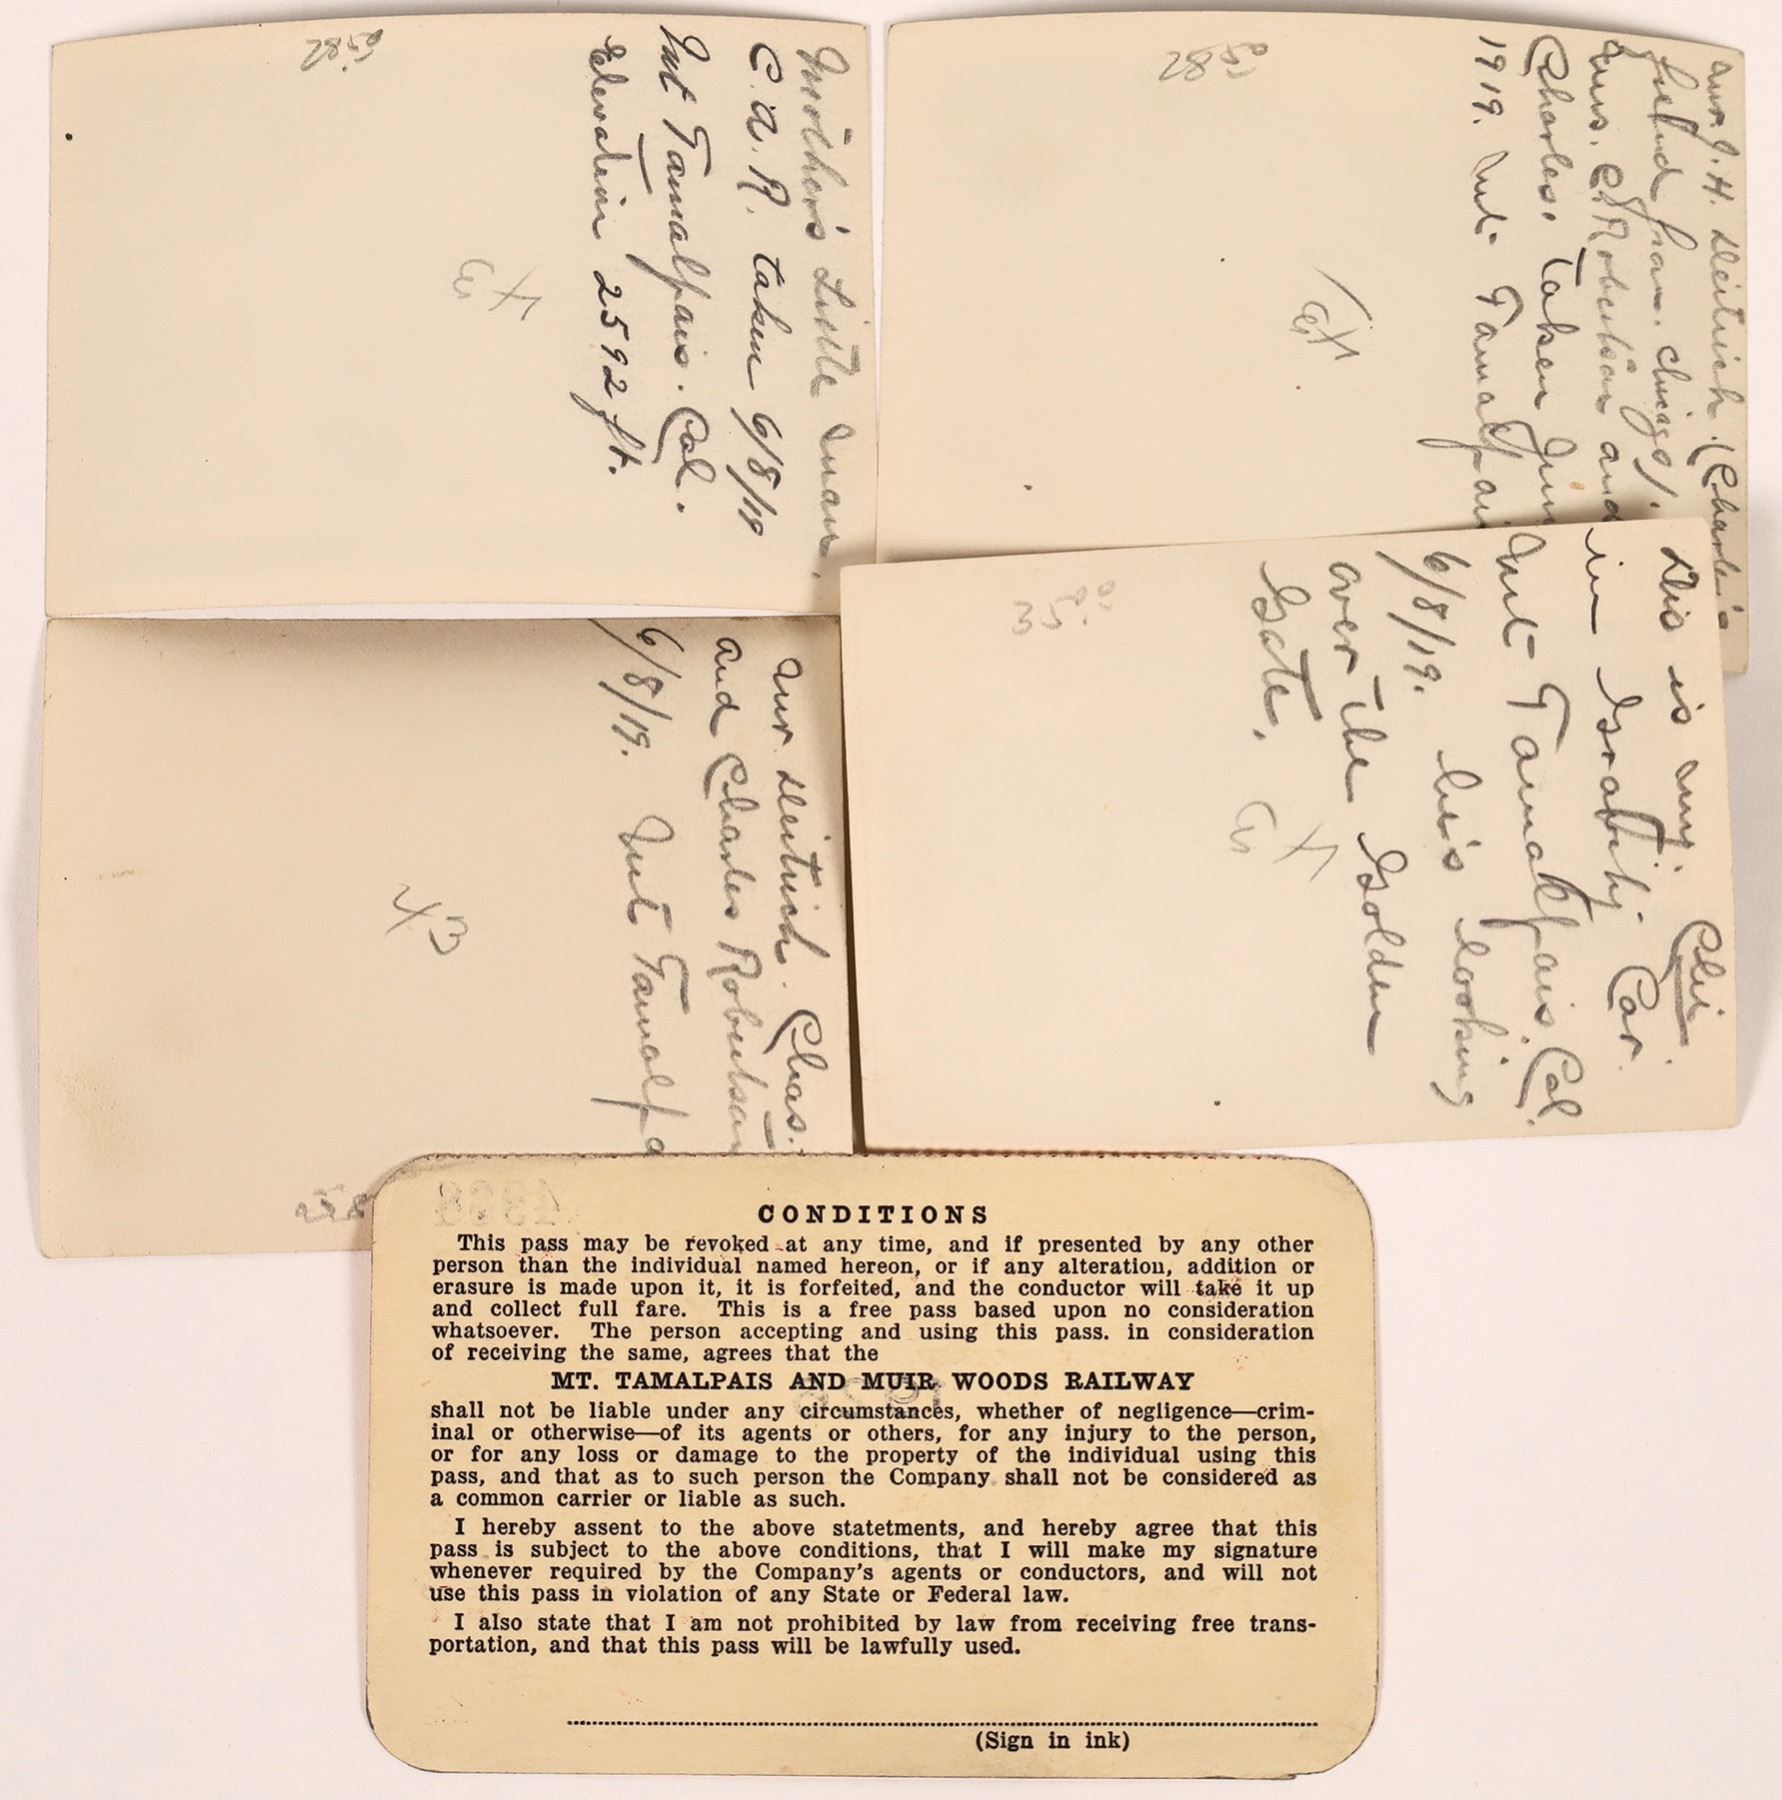 Mother's Little man.
C. A. R. taken 6/8/19
Mt Tamalpais. Cal.
Elevation 2592 ft.
Mr. J. H. Deitrich. (Charlie's
friend from. Chicago).
Mrs. Robertson and
Charles. Taken
1919. Mt. Tamalpais
This is my Chli.
in Gravity Car.
Mt Tamalpais. Cal.
6/8/19. he's looking
over the Golden
Gate.
Mr. Deitrich. Chas.
and Charles Robertson
6/8/19. Mt Tamalpa
CONDITIONS
This pass may be revoked at any time, and if presented by any other
person than the individual named hereon, or if any alteration, addition or
erasure is made upon it, it is forfeited, and the conductor will take it up
and collect full fare. This is a free pass based upon no consideration
whatsoever. The person accepting and using this pass. in consideration
of receiving the same, agrees that the
MT. TAMALPAIS AND MUIR WOODS RAILWAY
shall not be liable under any circumstances, whether of negligence—crim-
inal or otherwise—of its agents or others, for any injury to the person,
or for any loss or damage to the property of the individual using this
pass, and that as to such person the Company shall not be considered as
a common carrier or liable as such.
I hereby assent to the above statetments, and hereby agree that this
pass is subject to the above conditions, that I will make my signature
whenever required by the Company's agents or conductors, and will not
use this pass in violation of any State or Federal law.
I also state that I am not prohibited by law from receiving free trans-
portation, and that this pass will be lawfully used.
(Sign in ink)